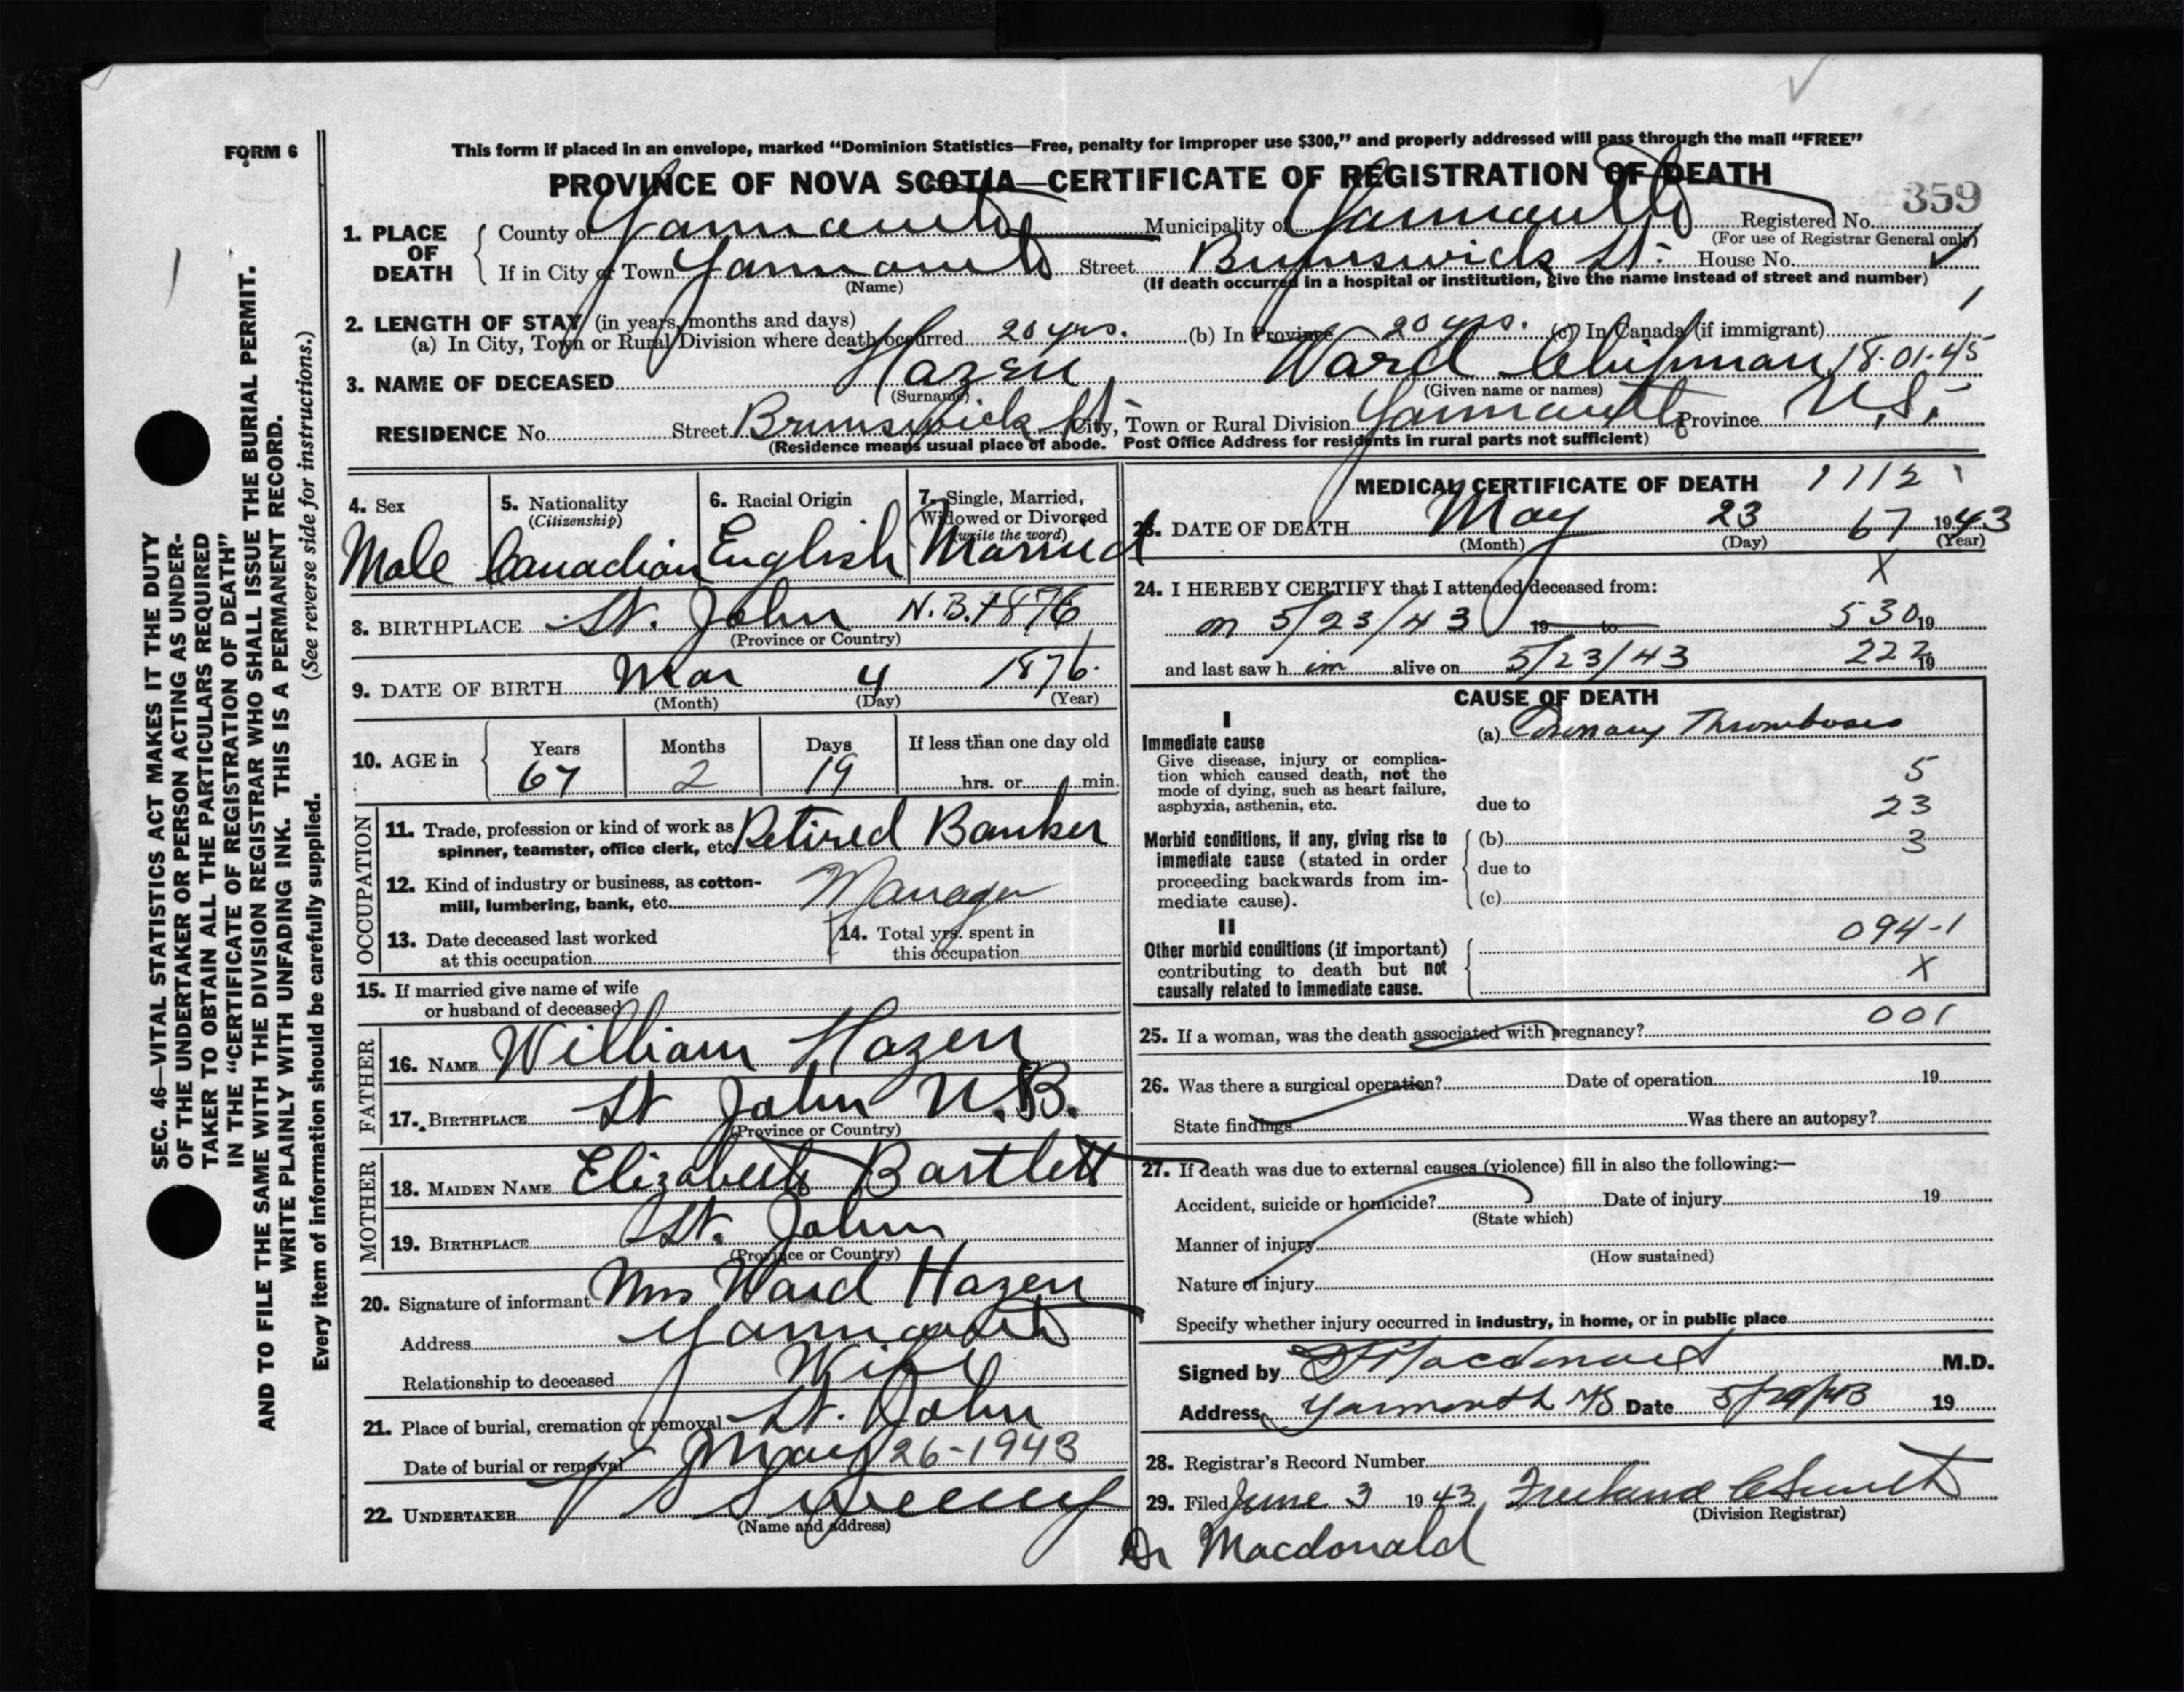 FORM 6
This form if placed in an envelope, marked "Dominion Statistics—Free, penalty for improper use $300," and properly addressed will pass through the mail "FREE"
PROVINCE OF NOVA SCOTIA—CERTIFICATE OF REGISTRATION OF DEATH
359
1. PLACE OF DEATH
County of Yarmouth Municipality of Yarmouth Registered No.
(For use of Registrar General only)
If in City or Town Yarmouth Street Brunswick St. House No.
(Name) (If death occurred in a hospital or institution, give the name instead of street and number)
2. LENGTH OF STAY (in years, months and days)
(a) In City, Town or Rural Division where death occurred 20 yrs. (b) In Province 20 yrs. (c) In Canada (if immigrant)
3. NAME OF DECEASED Hazen Ward Chipman 18-01-45
(Surname) (Given name or names)
RESIDENCE No. Street Brunswick St. City, Town or Rural Division Yarmouth Province N.S.
(Residence means usual place of abode. Post Office Address for residents in rural parts not sufficient)
4. Sex
Male
5. Nationality
(Citizenship)
Canadian
6. Racial Origin
English
7. Single, Married,
Widowed or Divorced
(write the word)
Married
8. BIRTHPLACE St. John N.B. 1876
(Province or Country)
9. DATE OF BIRTH Mar 4 1876.
(Month) (Day) (Year)
10. AGE in
Years Months Days If less than one day old
67 2 19 hrs. or min.
OCCUPATION
11. Trade, profession or kind of work as
spinner, teamster, office clerk, etc. Retired Banker
12. Kind of industry or business, as cotton-
mill, lumbering, bank, etc. Manager
13. Date deceased last worked
at this occupation
14. Total yrs. spent in
this occupation
15. If married give name of wife
or husband of deceased
FATHER
16. NAME William Hazen
17. BIRTHPLACE St John N.B.
(Province or Country)
MOTHER
18. MAIDEN NAME Elizabeth Bartlett
19. BIRTHPLACE St. John
(Province or Country)
20. Signature of informant Mrs Ward Hazen
Address Yarmouth
Relationship to deceased Wife
21. Place of burial, cremation or removal St. John
Date of burial or removal May 26-1943
22. UNDERTAKER V S Sweeney
(Name and address)
MEDICAL CERTIFICATE OF DEATH 1112
23. DATE OF DEATH May 23 67 1943
(Month) (Day) (Year)
X
24. I HEREBY CERTIFY that I attended deceased from:
on 5/23/43 19 to 530 19
and last saw him alive on 5/23/43 222 19
CAUSE OF DEATH
I
Immediate cause
Give disease, injury or complica-
tion which caused death, not the
mode of dying, such as heart failure,
asphyxia, asthenia, etc.
(a) Coronary Thrombosis
5
due to 23
Morbid conditions, if any, giving rise to
immediate cause (stated in order
proceeding backwards from im-
mediate cause).
(b) 3
due to
(c)
II
Other morbid conditions (if important)
contributing to death but not
causally related to immediate cause.
094-1
X
001
25. If a woman, was the death associated with pregnancy?
26. Was there a surgical operation? Date of operation 19
State findings Was there an autopsy?
27. If death was due to external causes (violence) fill in also the following:—
Accident, suicide or homicide? Date of injury 19
(State which)
Manner of injury
(How sustained)
Nature of injury
Specify whether injury occurred in industry, in home, or in public place
Signed by Macdonald M.D.
Address Yarmouth NS Date 19
28. Registrar's Record Number
29. Filed June 3 1943
(Division Registrar)
Dr Macdonald
SEC. 46—VITAL STATISTICS ACT MAKES IT THE DUTY
OF THE UNDERTAKER OR PERSON ACTING AS UNDER-
TAKER TO OBTAIN ALL THE PARTICULARS REQUIRED
IN THE "CERTIFICATE OF REGISTRATION OF DEATH"
AND TO FILE THE SAME WITH THE DIVISION REGISTRAR WHO SHALL ISSUE THE BURIAL PERMIT.
WRITE PLAINLY WITH UNFADING INK. THIS IS A PERMANENT RECORD.
Every item of information should be carefully supplied. (See reverse side for instructions.)